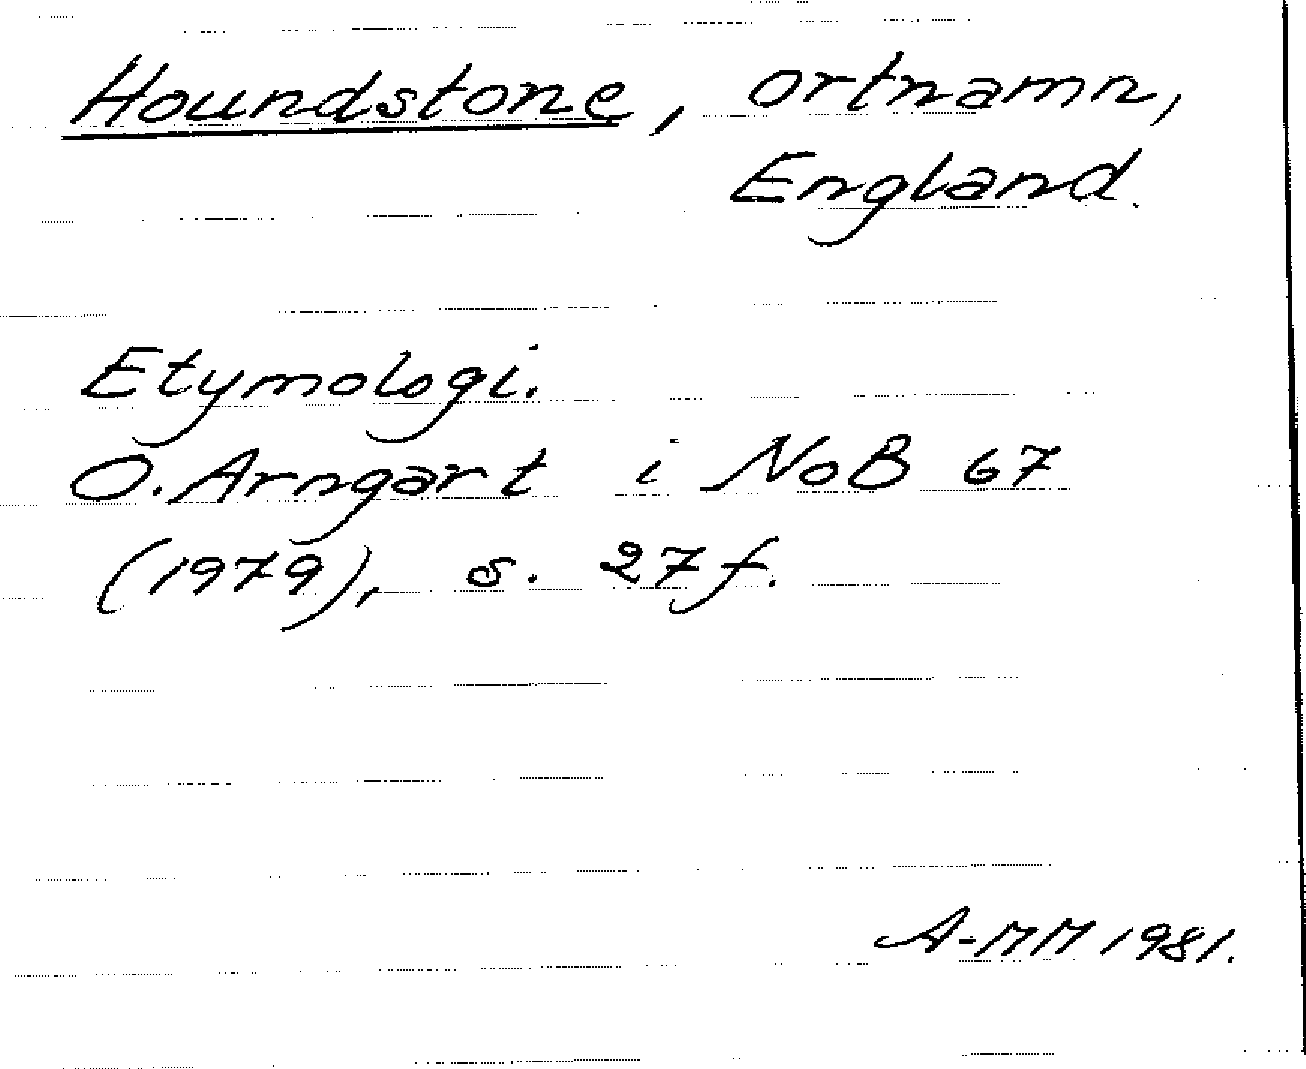 Houndstone, ortnamn,
England.
Etymologi.
O. Arngart i NoB 67
(1979), s. 27 f.
A-MM 1981.